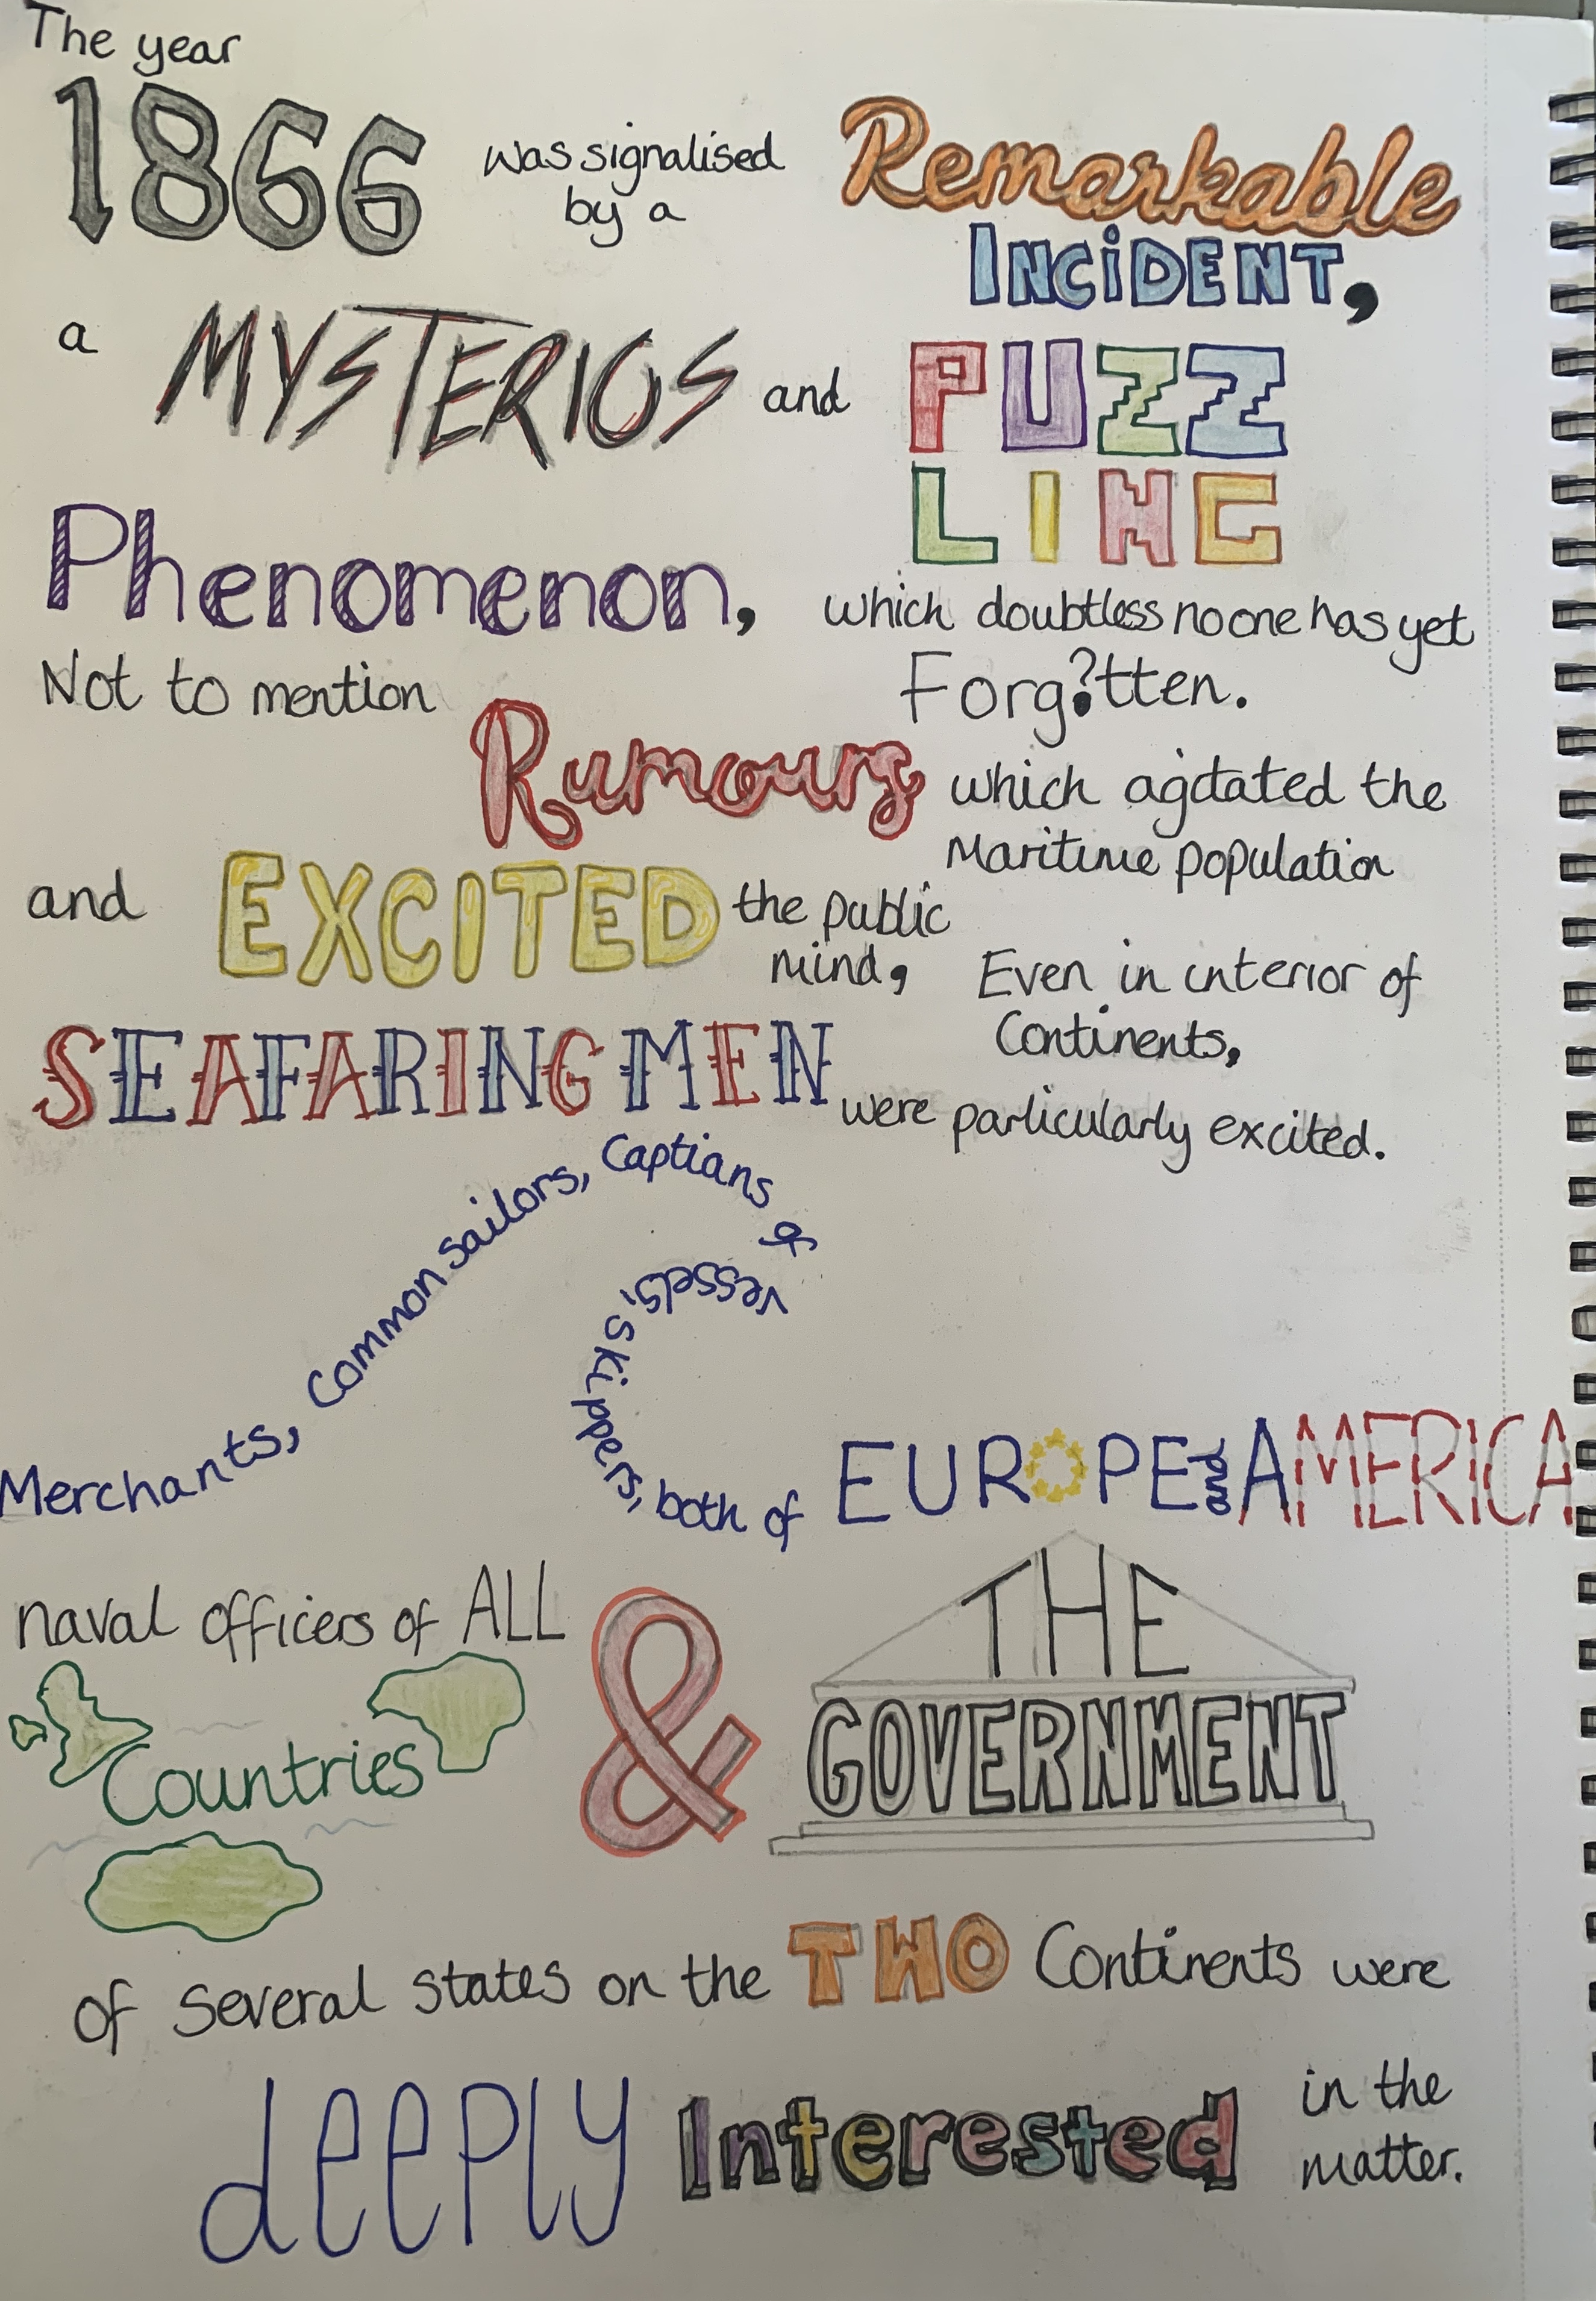 The year
1866 was signalised
by a
Remarkable
INCiDENT,
a MYSTERIOS and PUZZ
LING
Phenomenon, which doubtless no one has yet
Forg?tten.
Not to mention
Rumours which agitated the
Maritime population
and EXCITED the public
mind, Even in interior of
Continents,
SEAFARING MEN were particularly excited.
Merchants, Common sailors, Captians of
vessels, Skippers, both of EUROPE and AMERICA
naval officers of ALL
Countries & THE
GOVERNMENT
of several states on the TWO Continents were
dEEPLY Interested in the
matter.